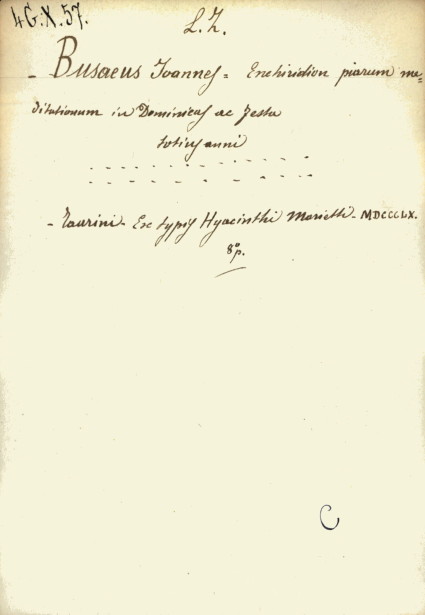 4G.X.57.
L.Z.
- Busaeus Joannes = Enchiridion piarum me=
ditationum in Dominicas ac Festa
totius anni
- Taurini - Ex typis Hyacinthi Marietti - MDCCCLX.
8° p.
C